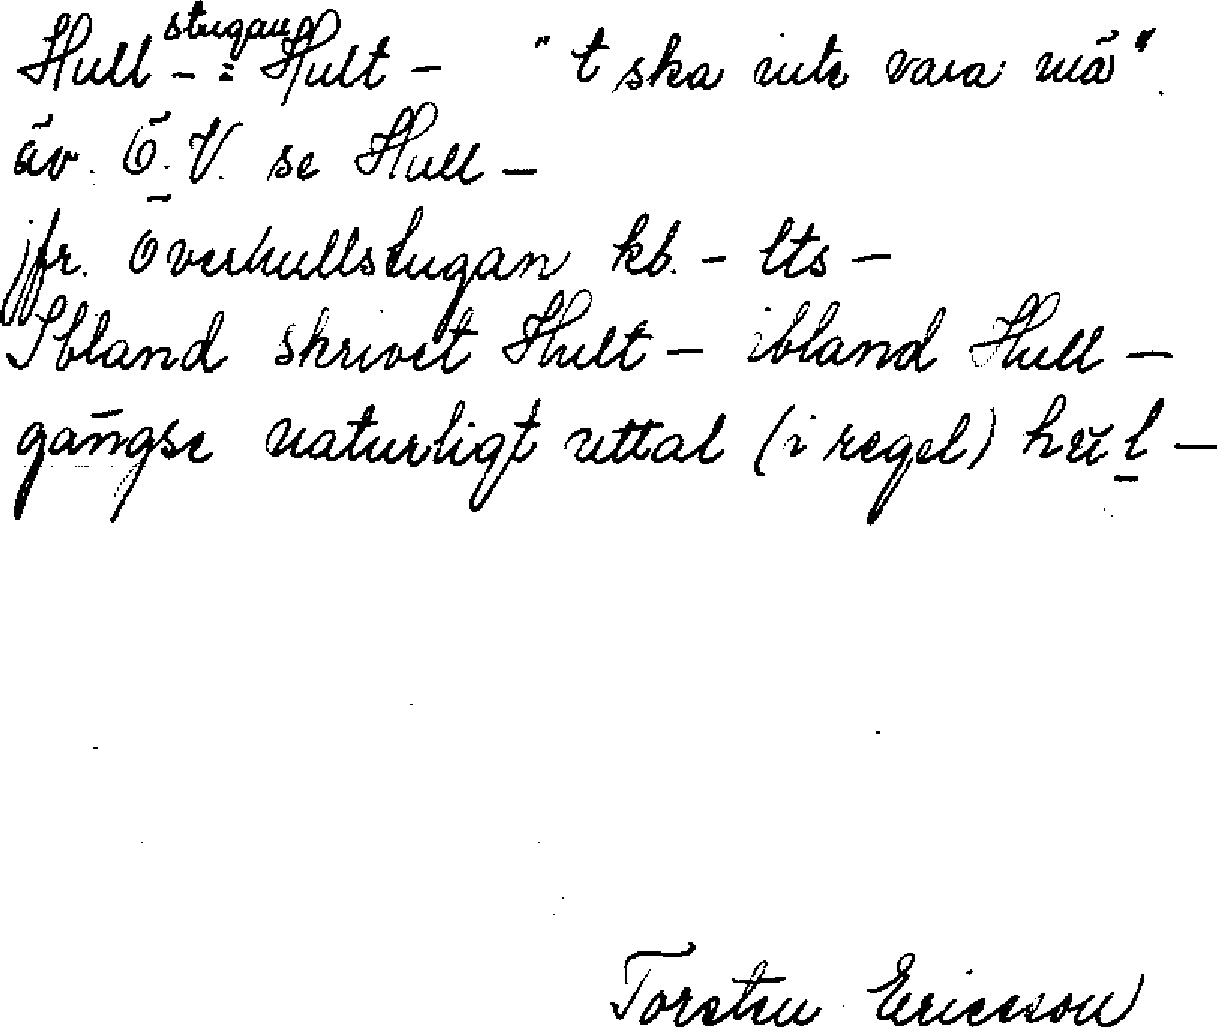 Hull - stugan = Hult - "t ska inte vara mä".
äv. Ö.V. se Hull -
jfr. Överhullstugan kb. - lts -
Ibland skrivet Hult - ibland Hull -
gängse naturligt uttal (i regel)
Torsten Ericsson